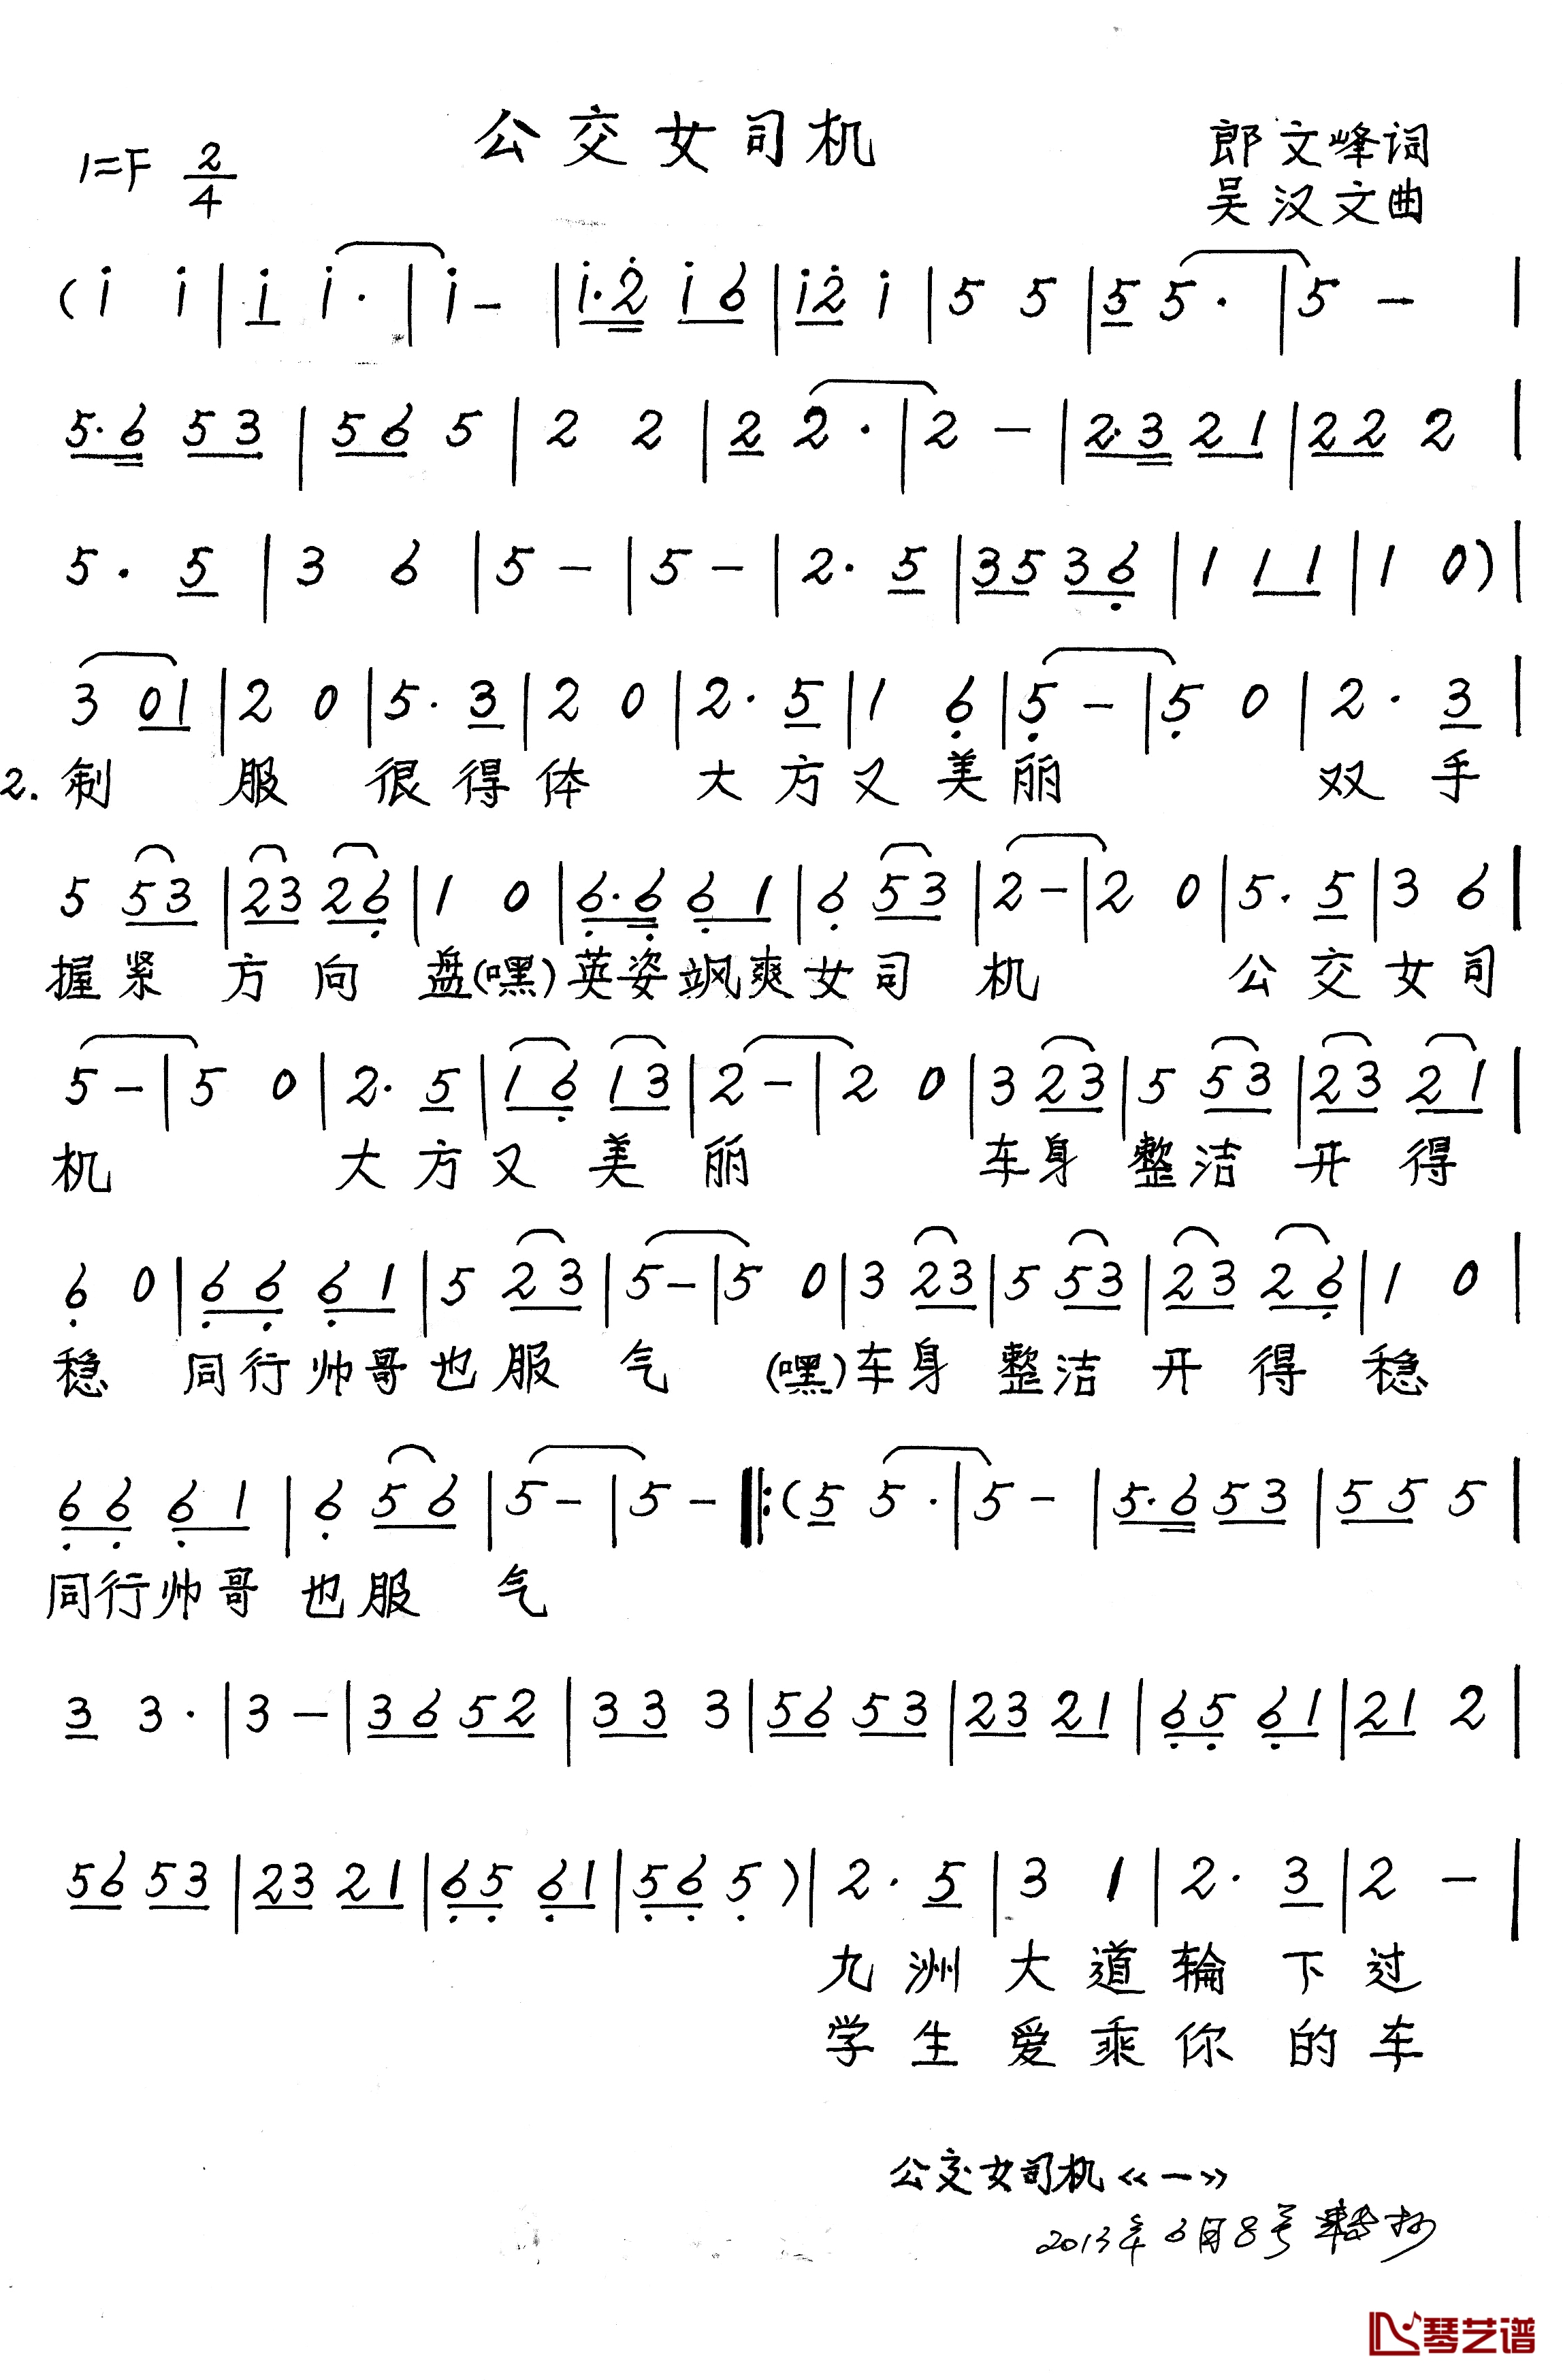 公交女司机
1=F 2/4
郎文峰词
吴汉文曲
(i i | i i· | i - | i·2̇ i 6 | i2̇ i | 5 5 | 5 5· | 5 - |
5·6 53 | 56 5 | 2 2 | 2 2· | 2 - | 2·3 21 | 22 2 |
5· 5 | 3 6 | 5 - | 5 - | 2· 5 | 35 36̣ | 1 11 | 1 0) |
3 01 | 2 0 | 5· 3 | 2 0 | 2· 5 | 1 6̣ | 5̣ - | 5̣ 0 | 2· 3 |
2. 制 服 很得体 大方又美丽 双手
5 53 | 23 26̣ | 1 0 | 6̣·6̣ 6̣1 | 6̣ 53 | 2 - | 2 0 | 5· 5 | 3 6 |
握紧方向盘(嘿)英姿飒爽女司机 公交女司
5 - | 5 0 | 2· 5 | 16̣ 13 | 2 - | 2 0 | 3 23 | 5 53 | 23 21 |
机 大方又美丽 车身整洁开得
6̣ 0 | 6̣6̣ 6̣1 | 5 23 | 5 - | 5 0 | 3 23 | 5 53 | 23 26̣ | 1 0 |
稳 同行帅哥也服气 (嘿)车身整洁开得稳
6̣6̣ 6̣1 | 6̣ 56 | 5 - | 5 - ‖: (5 5· | 5 - | 5·6 53 | 55 5 |
同行帅哥也服气
3 3· | 3 - | 36 52 | 33 3 | 56 53 | 23 21 | 6̣5̣ 6̣1 | 21 2 |
56 53 | 23 21 | 6̣5̣ 6̣1 | 5̣6̣ 5̣ ) | 2· 5 | 3 1 | 2· 3 | 2 - |
九洲大道轮下过
学生爱乘你的车
公交女司机《一》
2013年6月8号 抄
琴艺谱